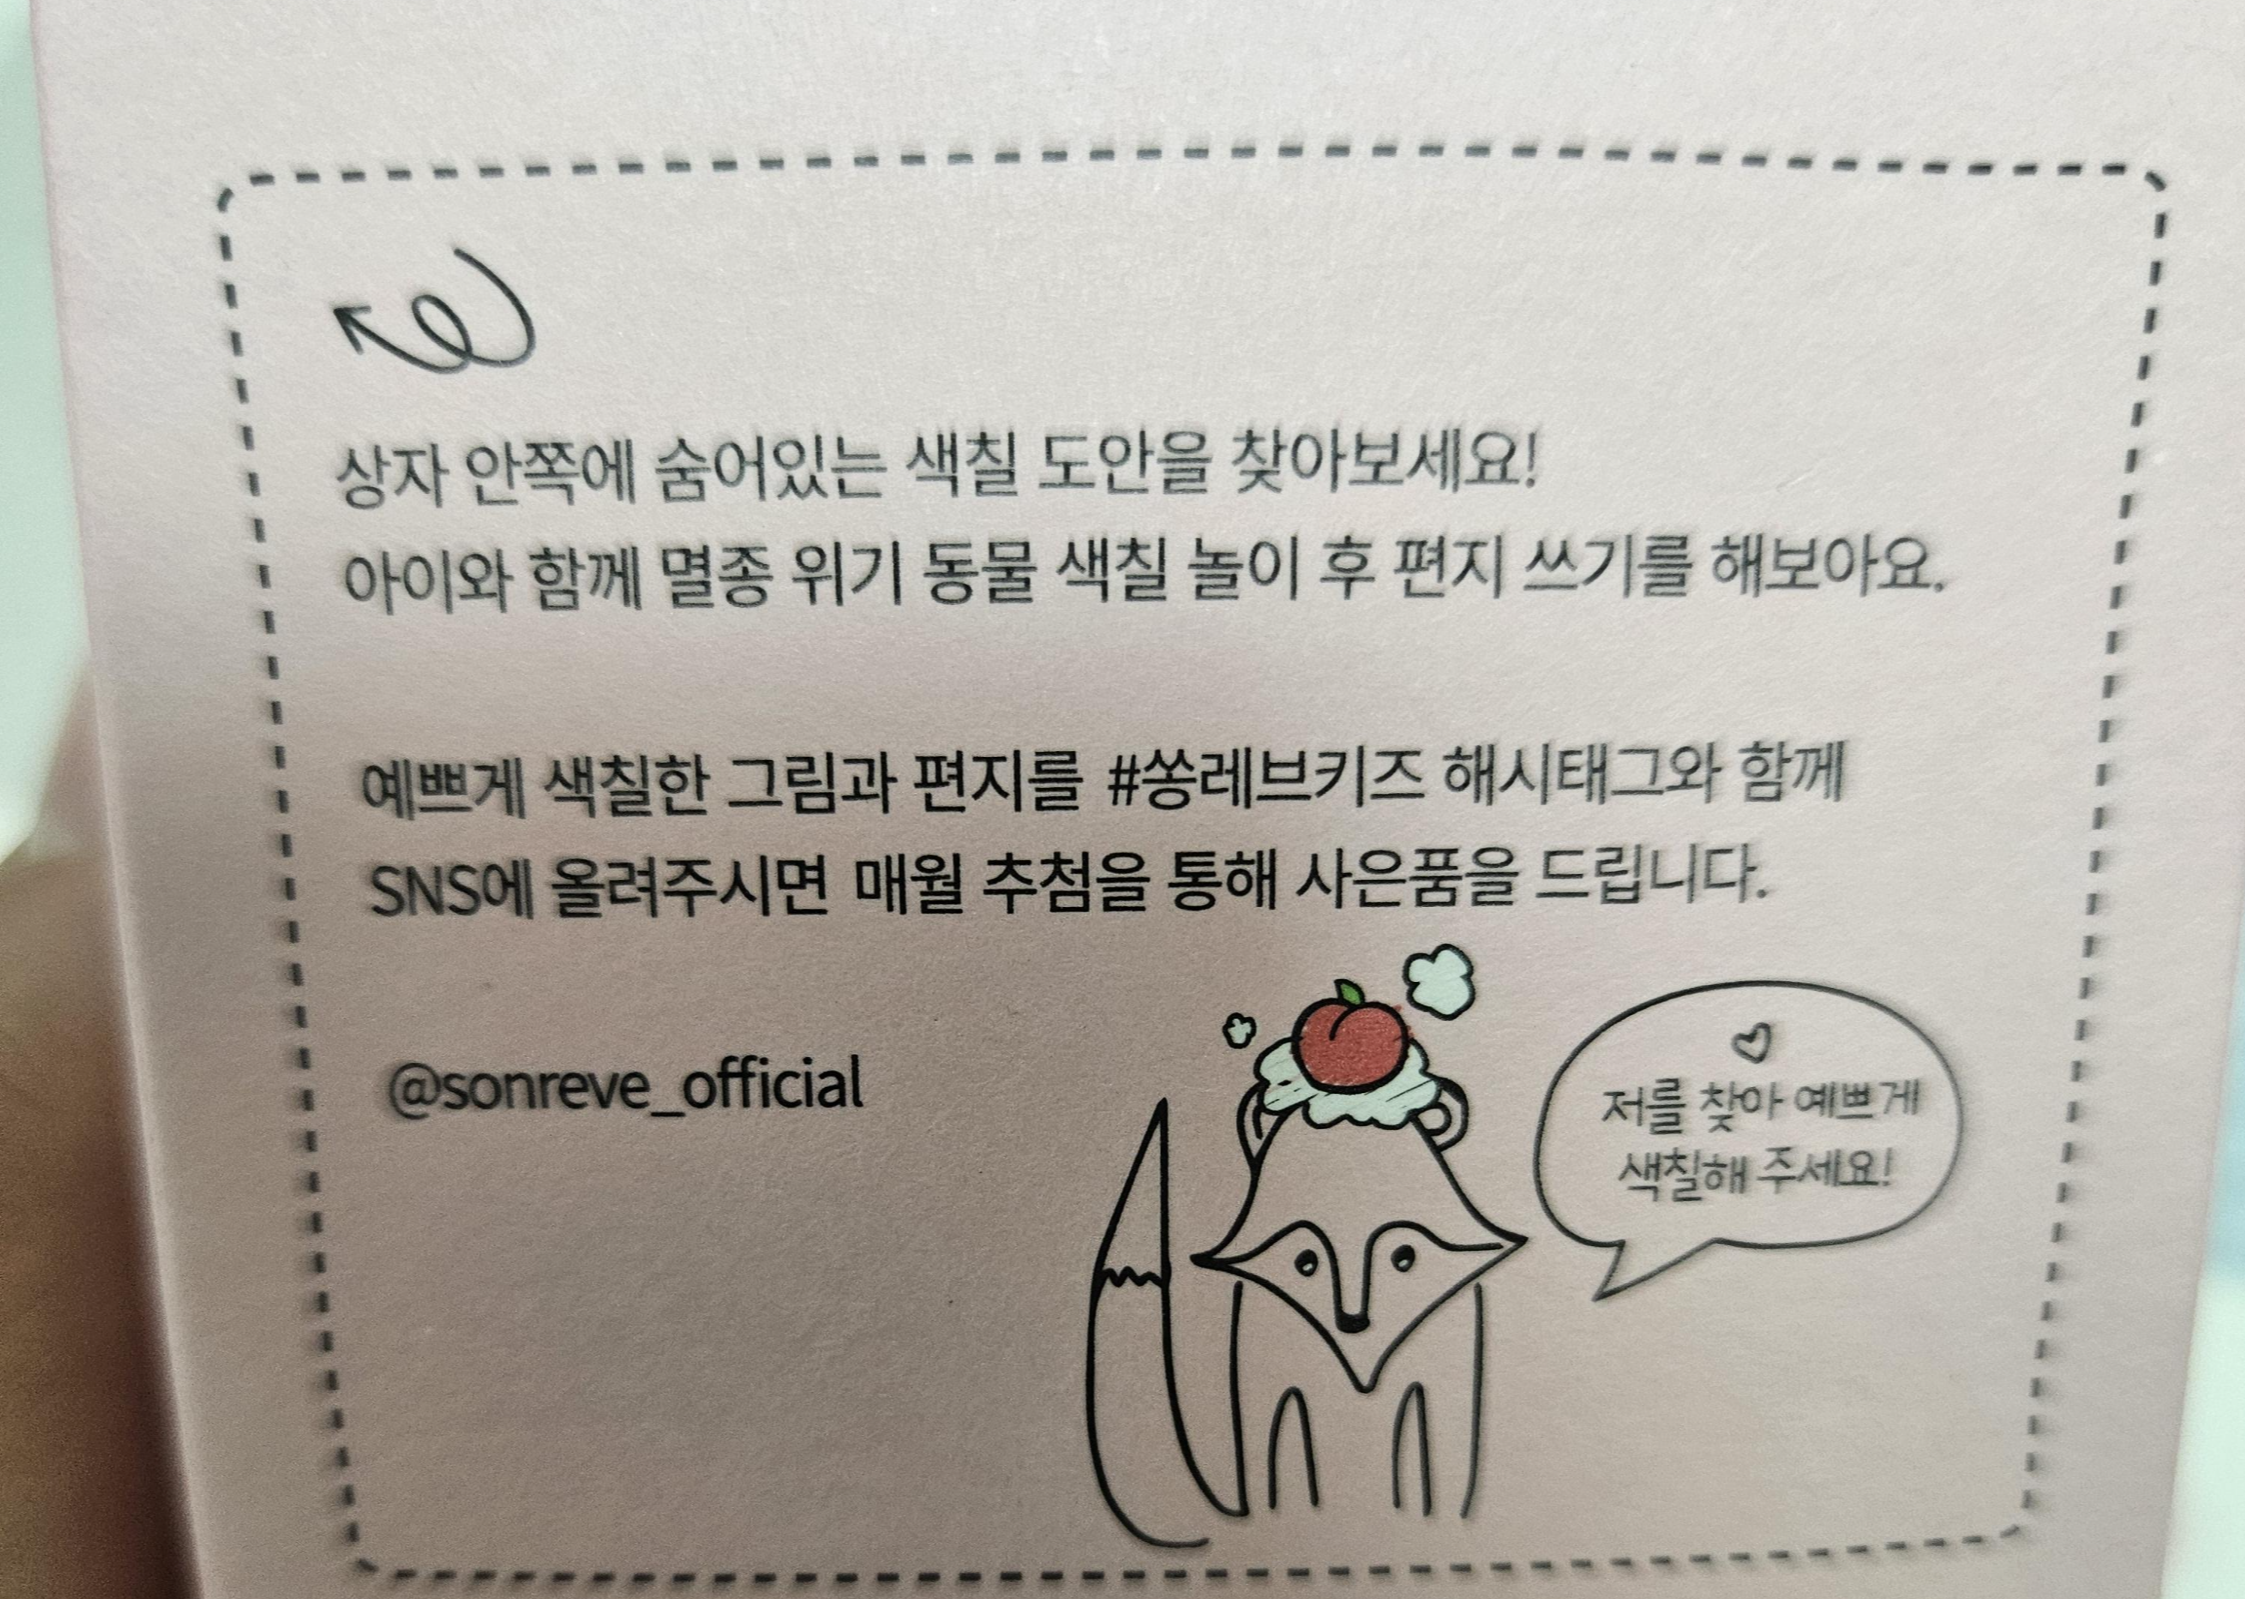 상자 안쪽에 숨어있는 색칠 도안을 찾아보세요!
아이와 함께 멸종 위기 동물 색칠 놀이 후 편지 쓰기를 해보아요.
예쁘게 색칠한 그림과 편지를 #쏭레브키즈 해시태그와 함께
SNS에 올려주시면 매월 추첨을 통해 사은품을 드립니다.
@sonreve_official
저를 찾아 예쁘게
색칠해 주세요!